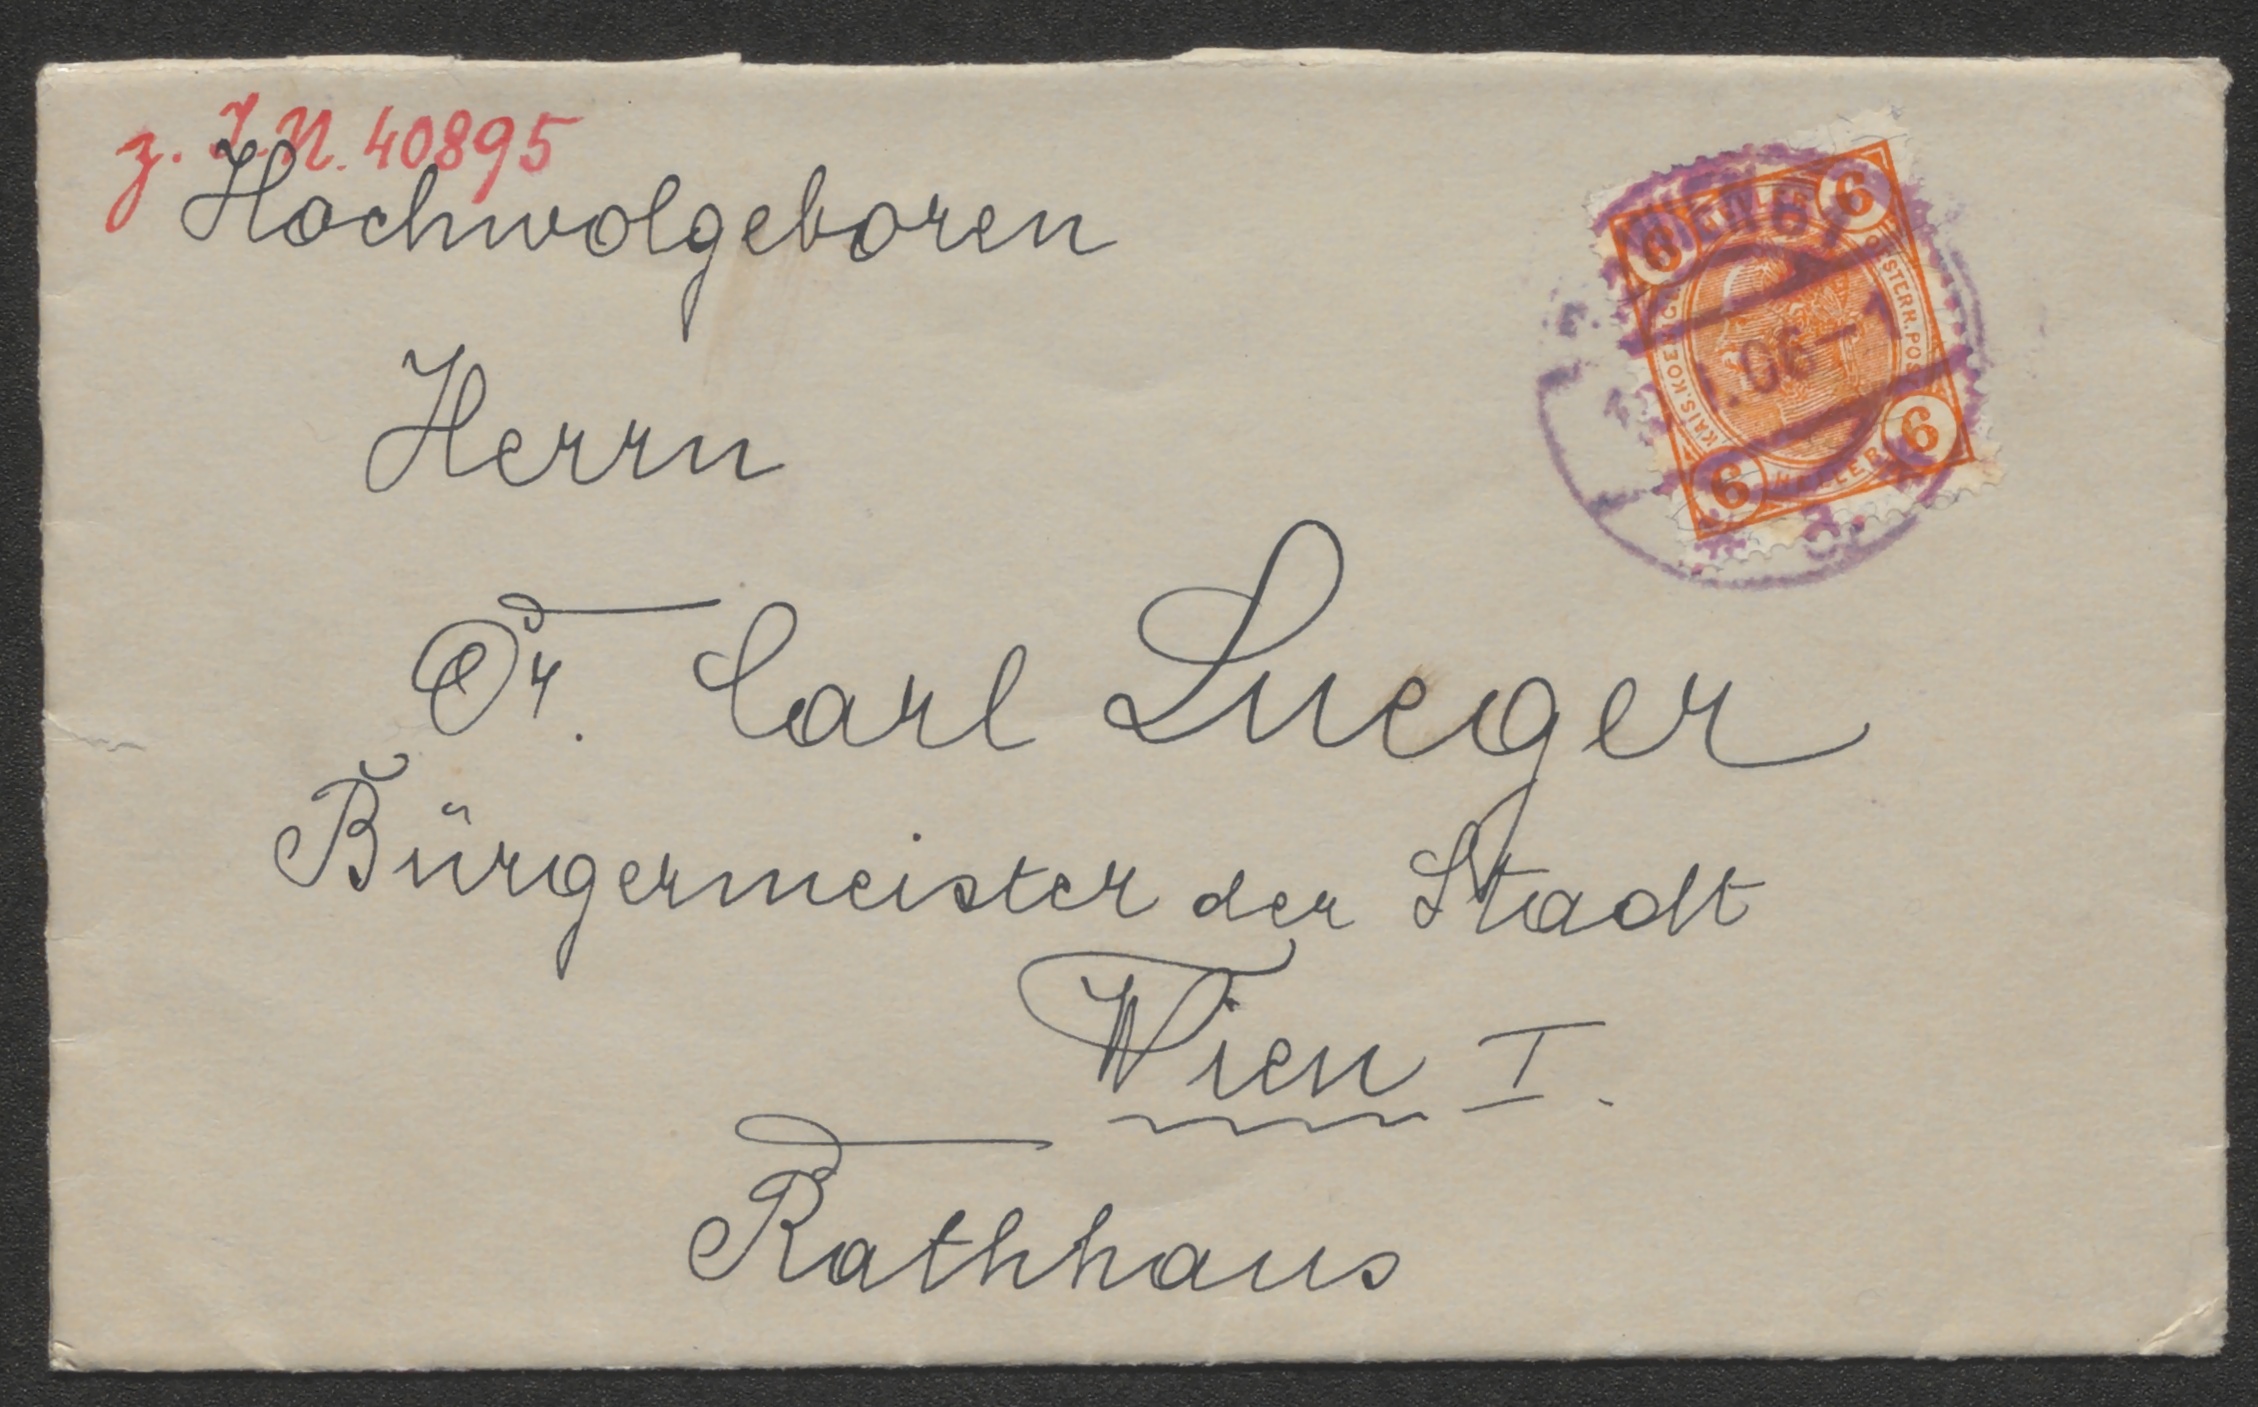 z. I.N. 40895
Hochwolgeboren
Herrn
Dr. Carl Lueger
Bürgermeister der Stadt
Wien I.
Rathhaus
6 HELLER 6
KAIS. KOENIGL. OESTERR. POST
6 HELLER 6
WIEN
06